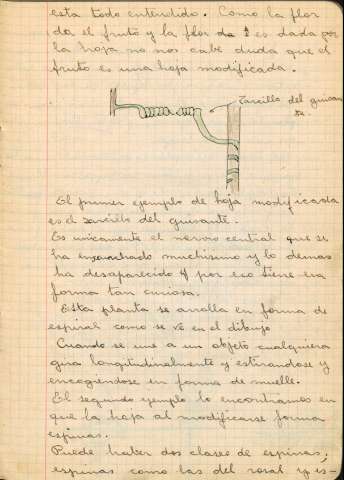 esta todo entendido. Como la flor
da el fruto y la flor da es dada por
la hoja no nos cabe duda que el
fruto es una hoja modificada.
Zarcillo del guisan
te
El primer ejemplo de hoja modificada
es el zarcillo del guisante.
Es unicamente el nervio central que se
ha muchisimo y lo demas
ha desaparecido y por eso tiene esa
forma tan curiosa.
Esta planta se arrolla en forma de
espiral como se vé en el dibujo
Cuando se une a un objeto cualquiera
gira longitudinalmente y estirandose y
encogiendose en forma de muelle.
El segundo ejemplo lo encontramos en
que la hoja al modificarse forma
espinas.
Puede haber dos clases de espinas;
espinas como las del rosal y es-